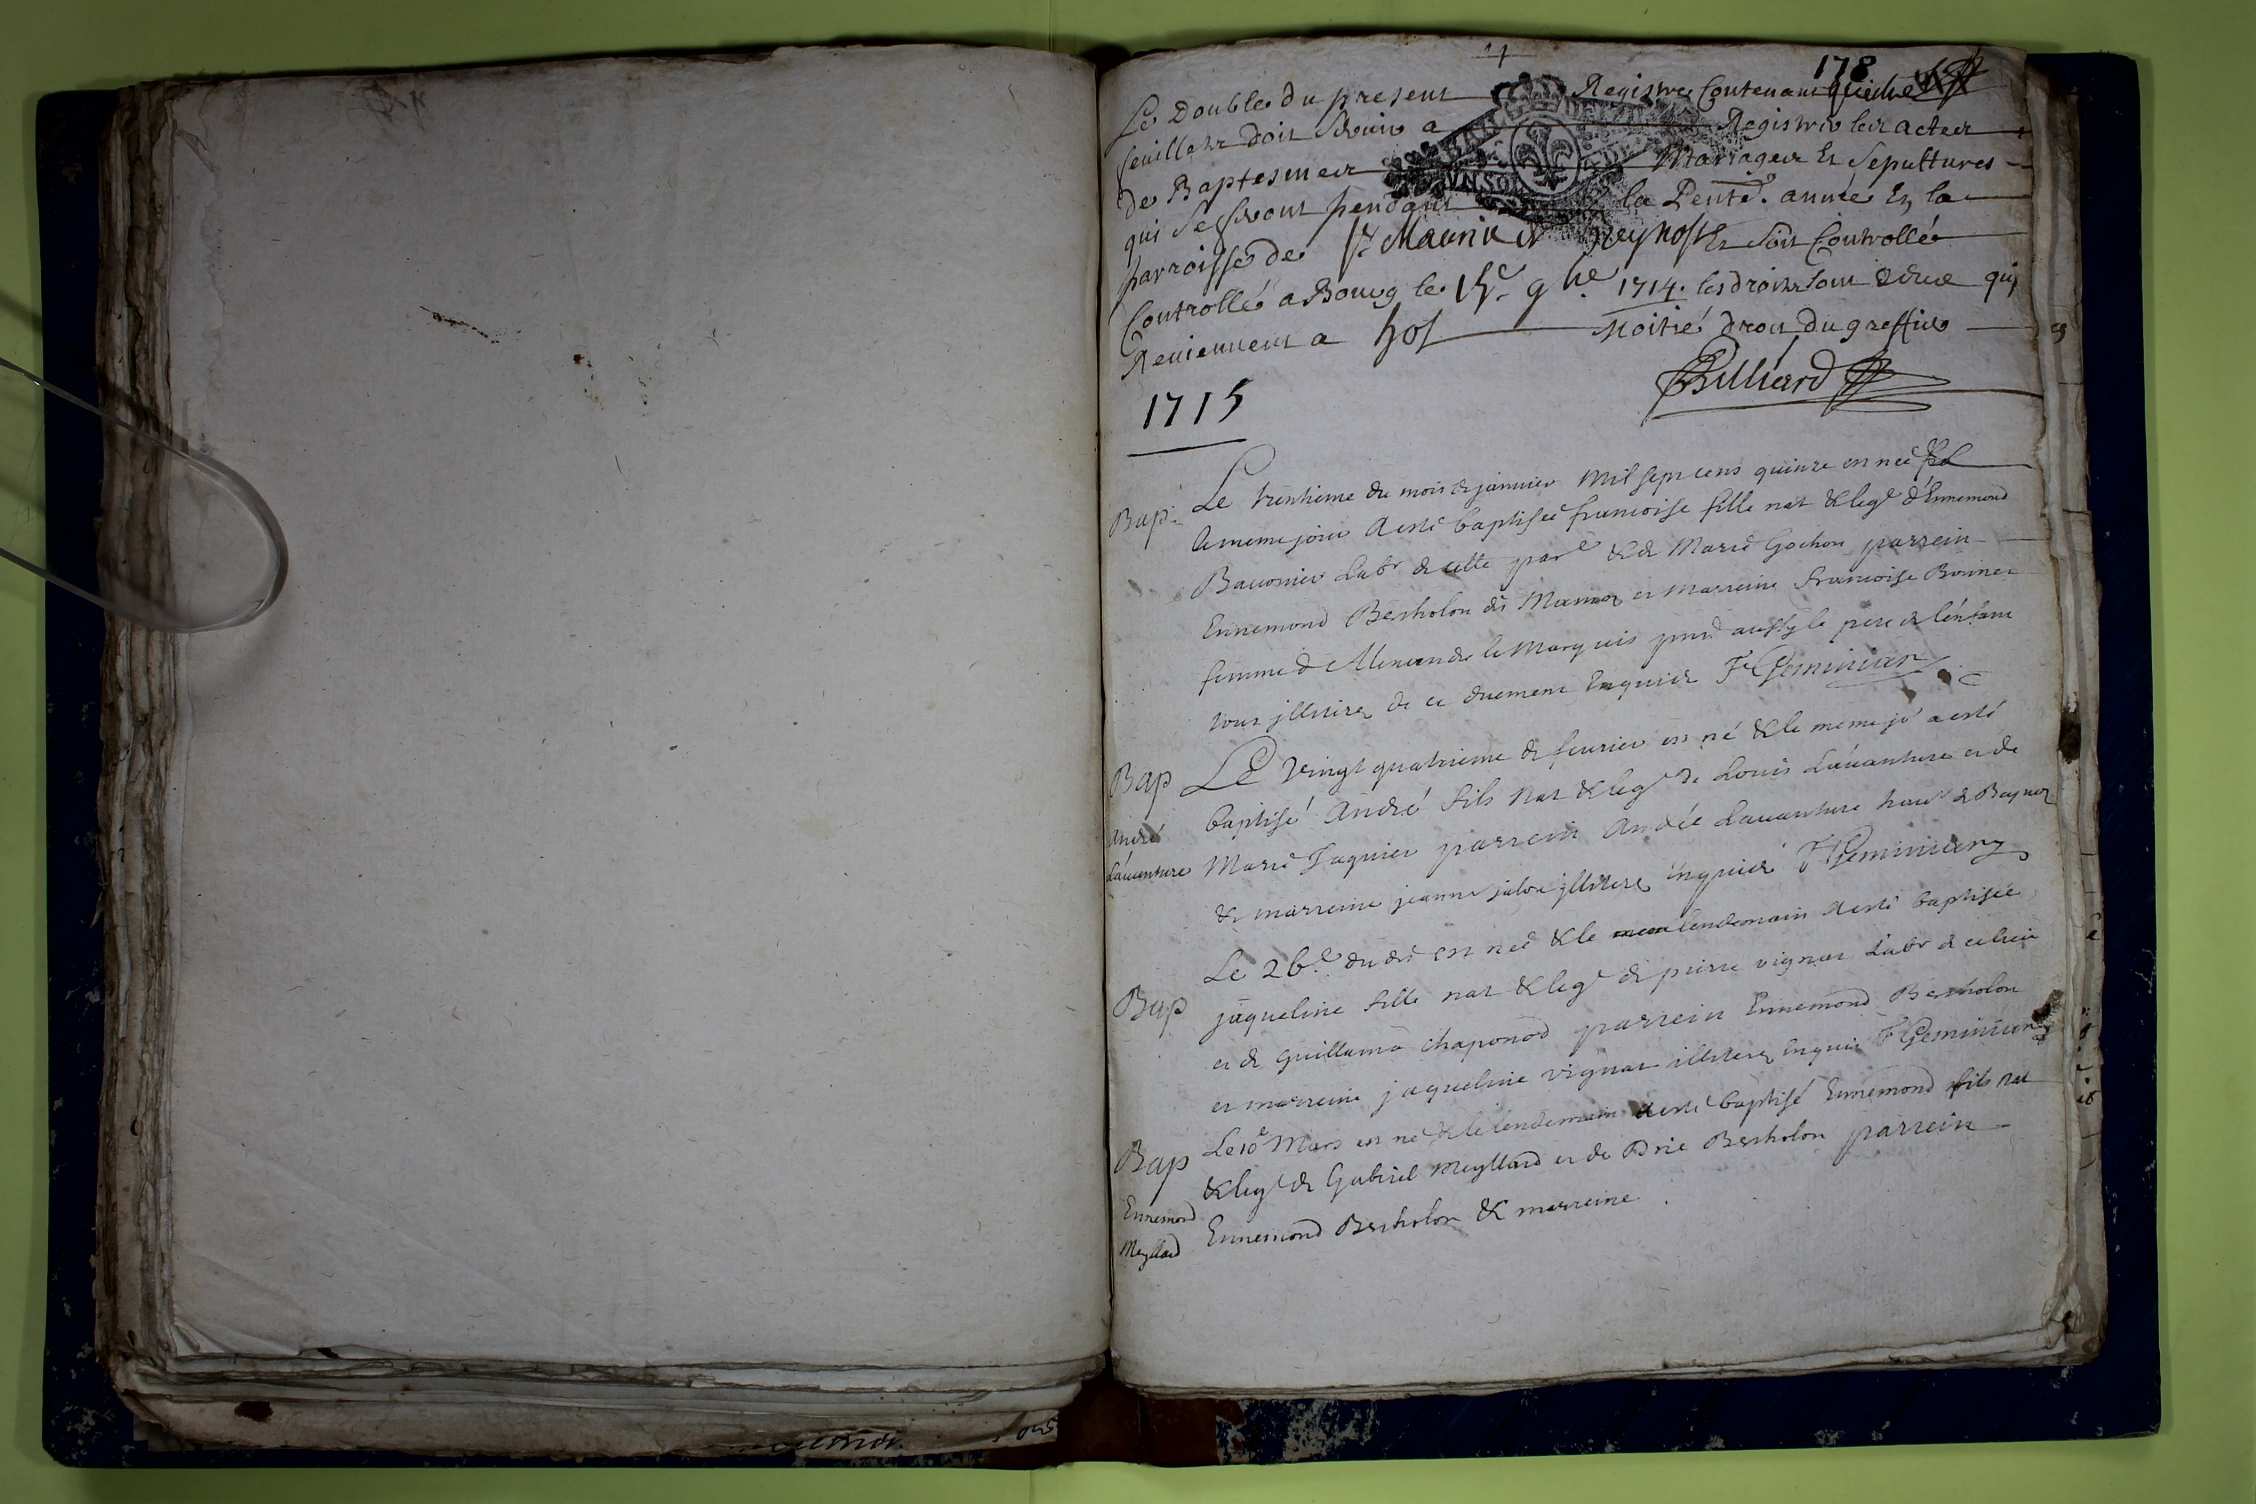 178
Le Double du present Registre Contenant
feuillets doit servir a Registrer les actes
de Baptesmes Mariages Et Sepultures
qui se feront pendant la Pente. année En la
parroisse de St Maurice de Beynost Et Soit Controllé
Controllé a Bourg le 15e 9bre 1714. les droits sont qui
Reviennent a Moitié droit du greffier
Billiard
1715
Bap
Le trentieme du mois de janvier Mil sept cens quinze est neé &
le meme jour a esté baptiseé francoise fille nat & leg d'Ennemond
Bauonier Labr de cette parre & de Marie Gochon parrein
Ennemond Bertholon dit et marreine francoise Bonnet
femme d'Alexandre le Marquis pnt aussy le pere de l'enfant
tous illiterez de ce duement Enquis F Geminian
Bap
André
Lauanture
Le Vingt quatrieme de feurier est né & le meme jo a esté
baptisé André fils Nat & leg de Louis Lauanture et de
Marie Jaquier parrein André Lauanture de Beynoz
& marreine jeanne illiterez enquis F Geminian
Bap
Le 26e dudt est neé & le lendemain a esté baptiseé
jaqueline fille nat & leg de pierre vignat Labr de ce lieu
et de Guillauma chaponod parrein Ennemond Bertholon
et marreine jaqueline vignat illiterez enquis F Geminian
Bap
Ennemond
Meyllard
Le 10e Mars est né & le lendemain a esté baptisé Ennemond fils nat
& leg de Gabriel Meyllard et de Bertholon parrein
Ennemond Bertholon & marreine